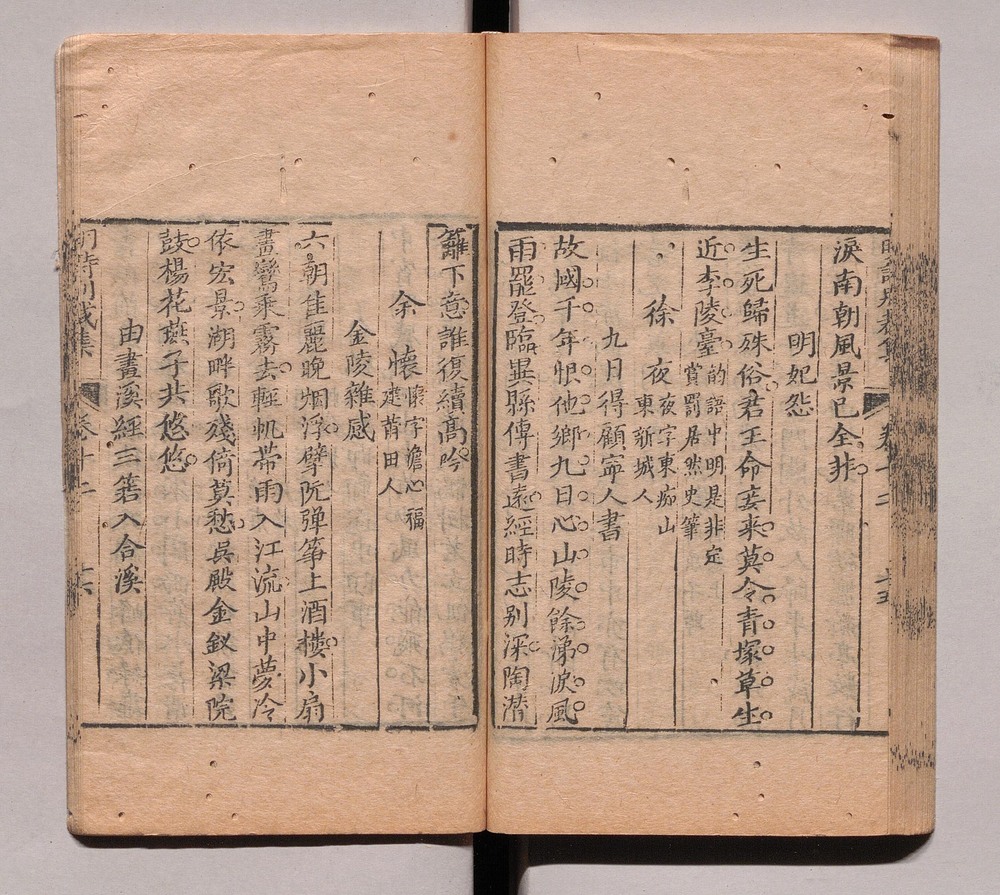 淚南朝風景已全非
明妃怨
生死歸殊俗君王命妾来莫令青塚草生
近李陵臺的語中明是非定
賞罰居然史筆
徐夜夜字東痴山
東新城人
九日得顧寧人書
故國千年恨他鄉九日心山陵餘涕淚風
雨罷登臨異縣傳書遠經時志别深陶潜
籬下意誰復續髙吟
余懷懷字澹心福
建莆田人
金陵雜感
六朝佳麗晚烟浮擘阮弹箏上酒樓小扇
畫鸞乘霧去輕帆帶雨入江流山中夢冷
依宏景湖畔歌殘倚莫愁吳殿金釵梁院
鼓楊花燕子共悠悠
由畫溪經三箬入合溪